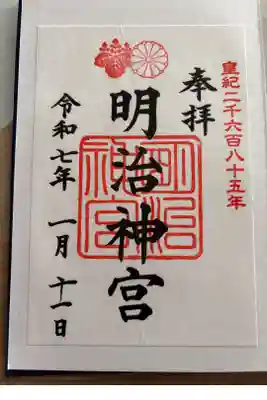 皇紀二千六百八十五年
奉拝
明治神宮
明治神宮
令和七年 一月 十一日